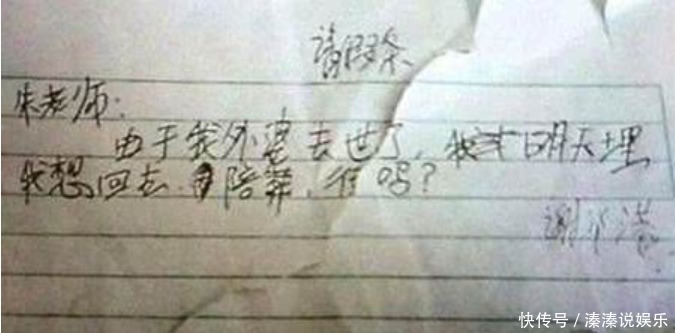 请假条
朱老师：
由于我外婆去世了，我才明天埋
我想回去陪葬，行吗？
谢
快传号 / 溱溱说娱乐